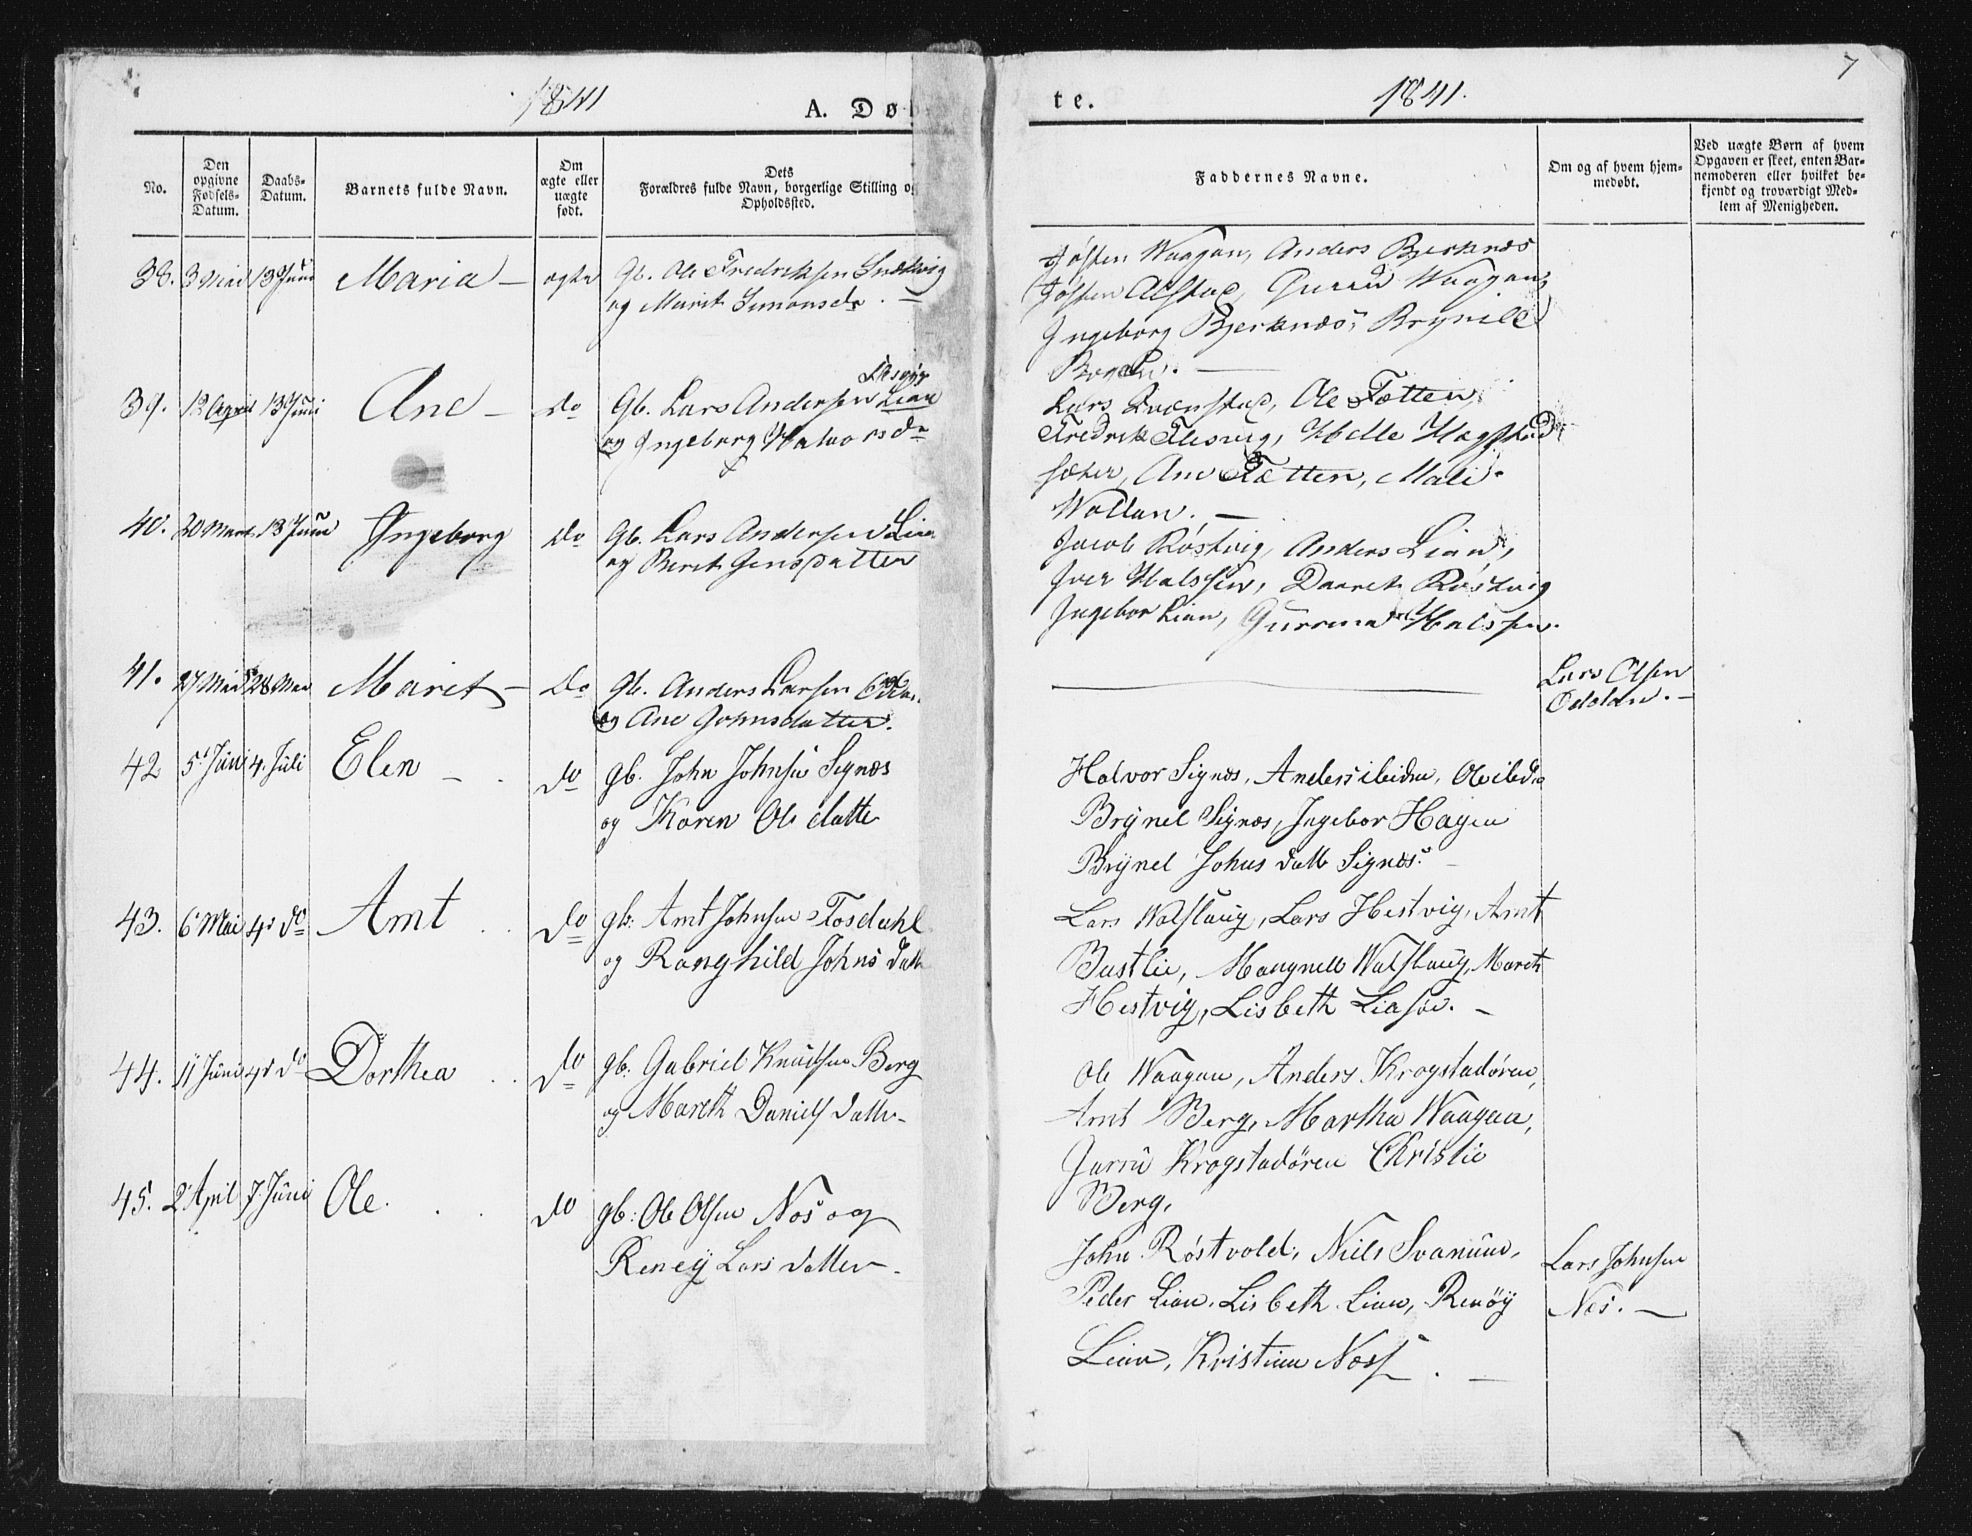 1841
A. Døb
te.
1841.
7
No.
Den opgivne Fødsels-Datum.
Daabs-Datum.
Barnets fulde Navn.
Om ægte eller uægte født.
Dets Forældres fulde Navn, borgerlige Stilling og Opholdssted.
Faddernes Navne.
Om og af hvem hjem-medøbt.
Ved uægte Børn af hvem Opgaven er skeet, enten Bar-nemoderen eller hvilket be-kjendt og troværdigt Med-lem af Menigheden.
38. 3 Mai 13 Juni Maria – ægte Gb. Ole Fredriksen
og Marit Simonsdr. –
Jøsten Waagan, Anders Bjerknæs
Jøsten Alstad, Gurru Waagan,
Ingeborg Bjerknæs, Brynild
39. 12 April 13 Juni Ane – do Gb. Lars Andersen Lian
Flesvig
og Ingeborg Halvorsdr
Lars Ole Tætten,
Fredrik Flesvig, Helle
sæter, Ane Tætten, Mali
Wollan. –
40. 30 Mart 13 Juni Ingeborg do Gb. Lars Andersen Lian
og Berit Jensdatter
Jacob Røstvig, Anders Lian,
Iver Halssen, Daaret Røstvig
Ingebor Lian, Gurrena Halssen.
41. 27 Mai 28 Mai Marit – do gb. Anders Larsen
og Ane Johnsdatter.
Lars Olsen
Odolan. –
42 5 Juni 4. Juli Elen – . do gb. John Johnsen Signæs
og Karen Olsdatte
Halvor Signæs, Anders ibidm, Ole ibdm
Brynel Signæs, Ingebor Hagen
Brynel Johns datt Signæs. –
43. 6 Mai 4 do Arnt . . do gb: Arnt Johnsen Fosdahl
og Ranghild Johns datt
Lars Walslaug, Lars Hestvig, Arnt
Bustlie, Maugnell Walslaug, Mareth
Hestvig, Lisbeth Liasøe. –
44. 11 Juni 4 do Dorthea . . do gb: Gabriel Knudsen Berg
og Mareth Daniels datter
Ole Waagan, Anders Krogstadøren,
Arnt Berg, Martha Waagan,
Gurru Krogstadøren Christie
Berg,
45. 2 April 7 Juni Ole. . . do gb: Ole Olsen Næs og
Reneÿ Lars datter –
John Røstvold, Niels Svanum,
Peder Lian, Lisbeth Lian, Renøÿ
Lian, Kristian Næss . –
Lars Johnsen
Næs. –